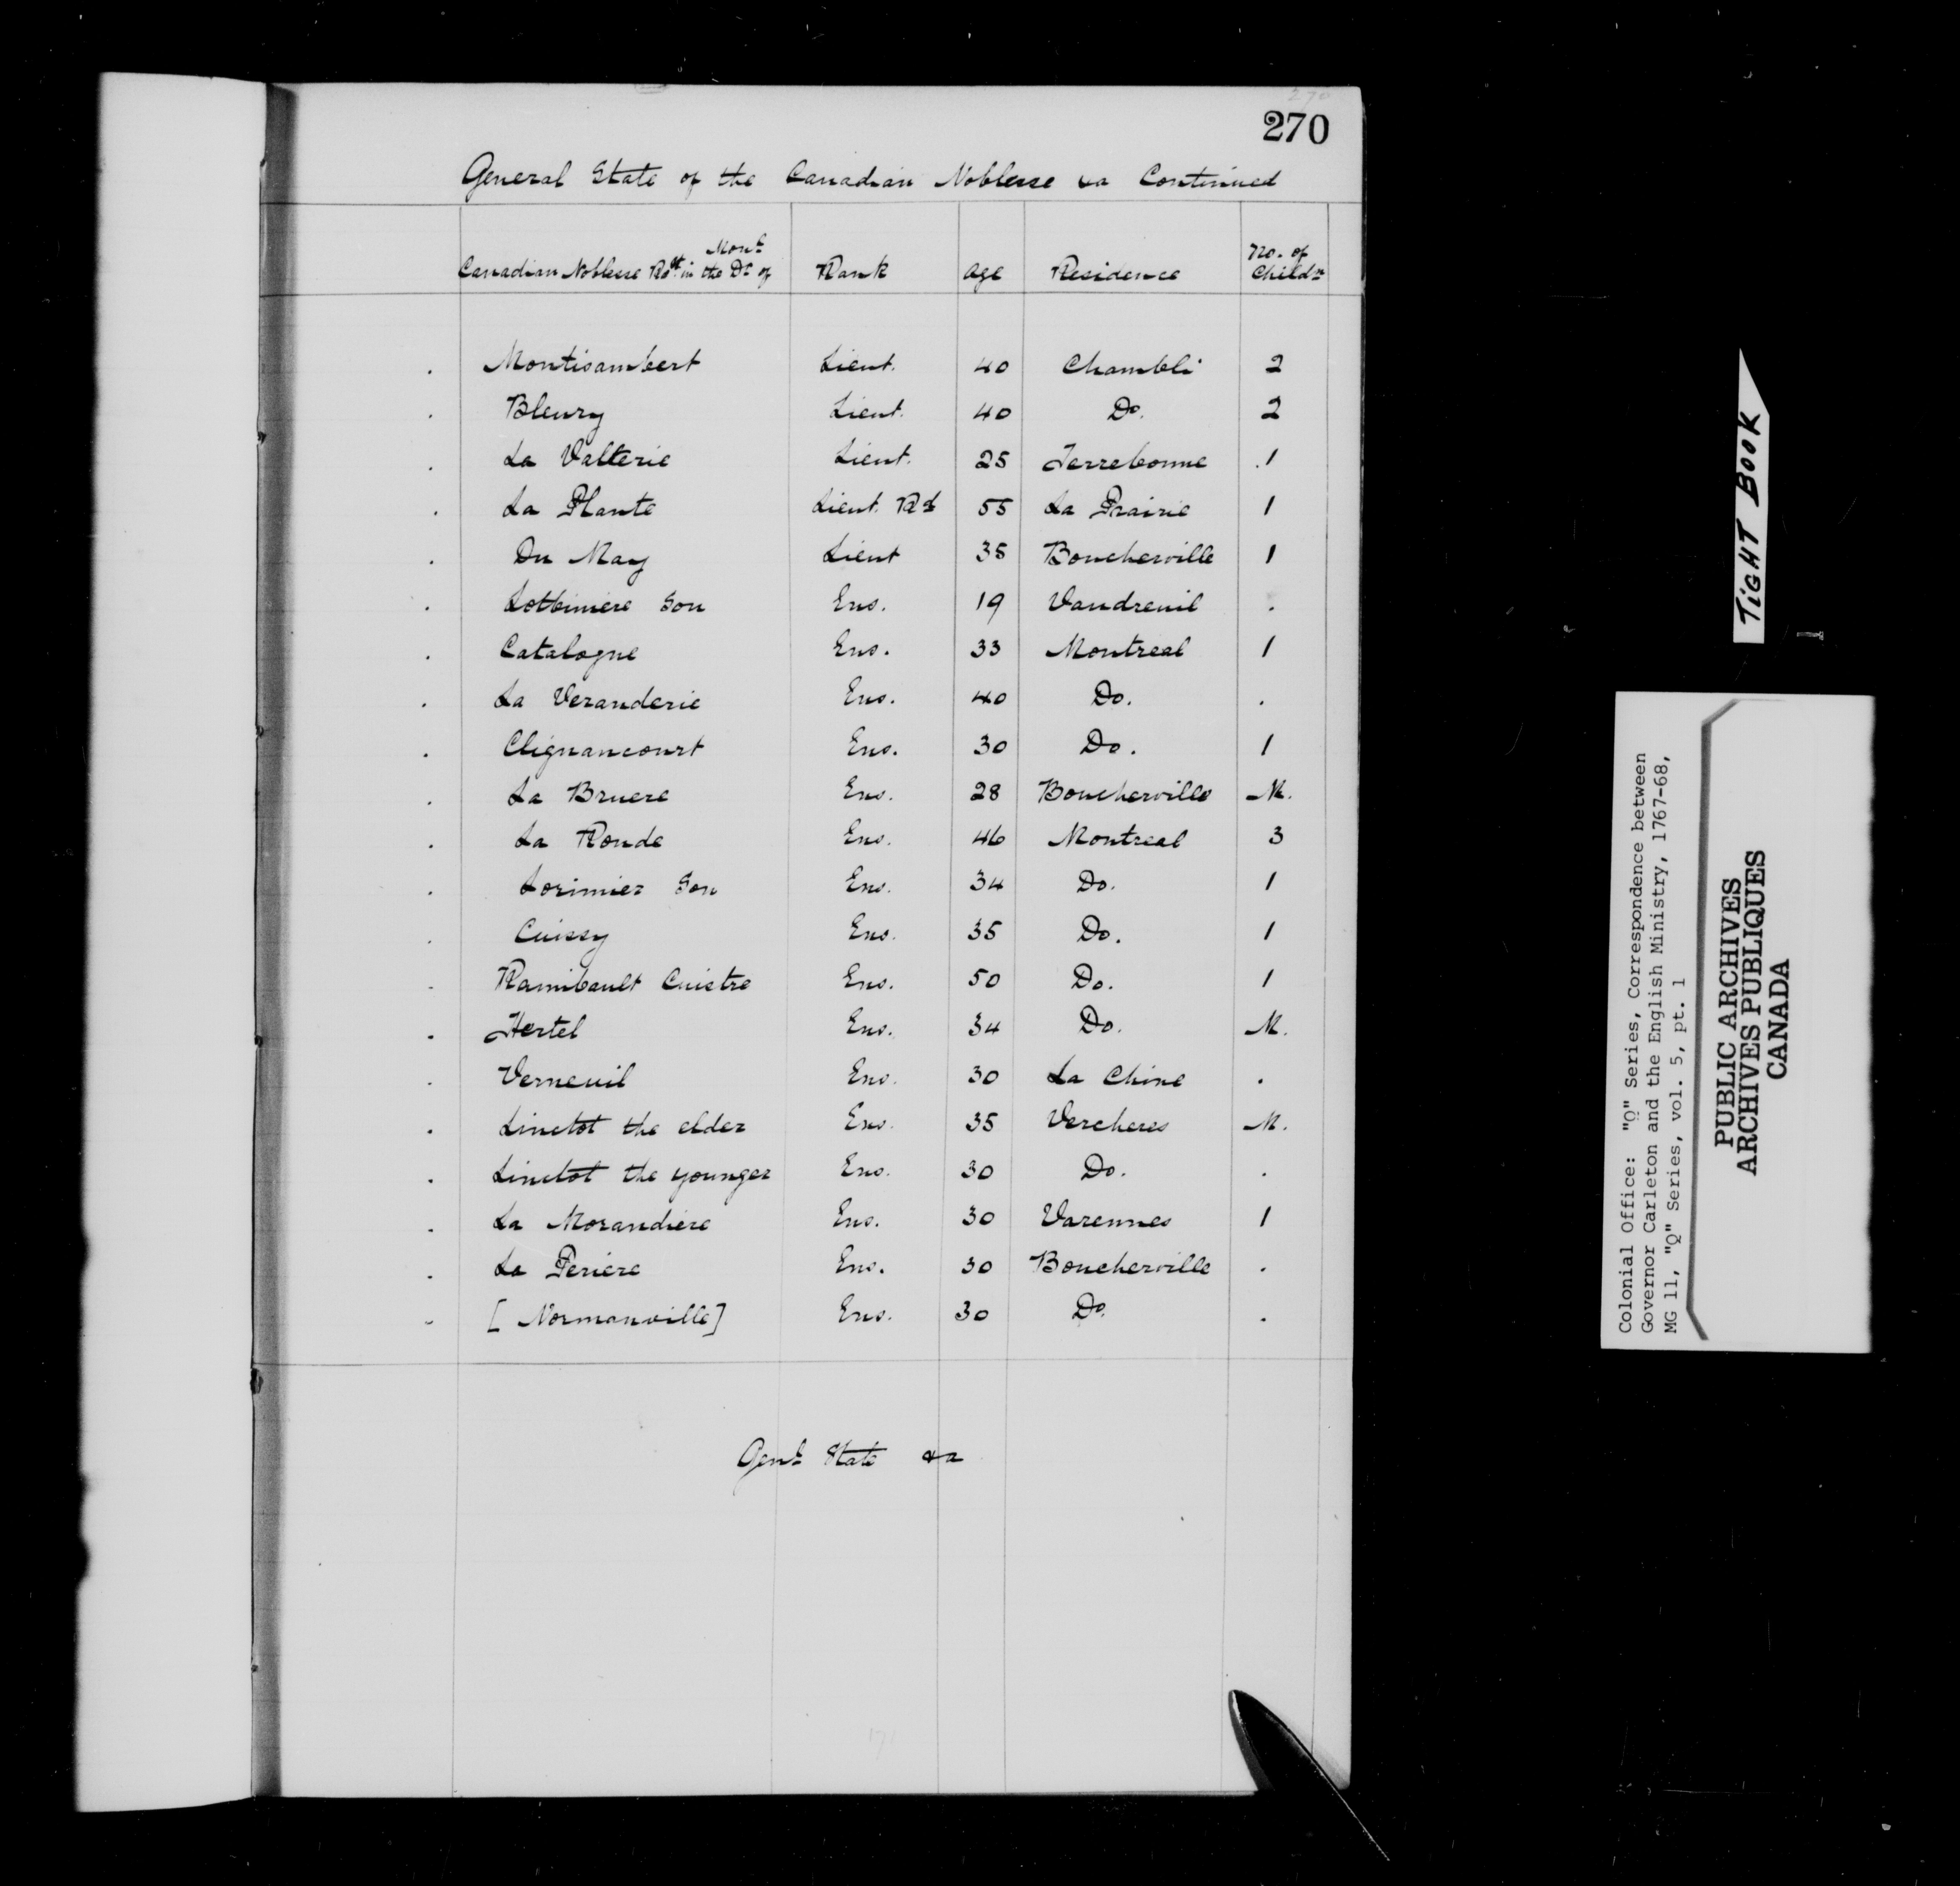 270
270
General State of the Canadian Noblesse &a Continued
Canadian Noblesse Resdt in the Dt of Monl Rank age Residence No. of Childn
Montisambert Lieut. 40 Chambli 2
Bleury Lieut. 40 Do. 2
La Valterie Lieut. 25 Terrebonne .1
La Plante Lieut. Rd 55 La Prairie 1
Du May Lieut 35 Boucherville 1
Lotbiniere Son Ens. 19 Vaudreuil .
Catalogne Ens. 33 Montreal 1
La Veranderie Ens. 40 Do. .
Clignancourt Ens. 30 Do. 1
La Bruere Ens. 28 Boucherville M.
La Ronde Ens. 46 Montreal 3
Lorimier Son Ens. 34 Do. 1
Cuissy Ens. 35 Do. 1
Raimbault Cuistre Ens. 50 Do. 1
Hertel Ens. 34 Do. M.
Verneuil Ens. 30 La Chine .
Linctot the elder Ens. 35 Vercheres M.
Linctot the younger Ens. 30 Do. .
La Morandiere Ens. 30 Varennes 1
La Periere Ens. 30 Boucherville .
[Normanville] Ens. 30 Do. .
Genl State &a
171
TIGHT BOOK
Colonial Office: "Q" Series, Correspondence between
Governor Carleton and the English Ministry, 1767-68,
MG 11, "Q" Series, vol. 5, pt. 1
PUBLIC ARCHIVES
ARCHIVES PUBLIQUES
CANADA